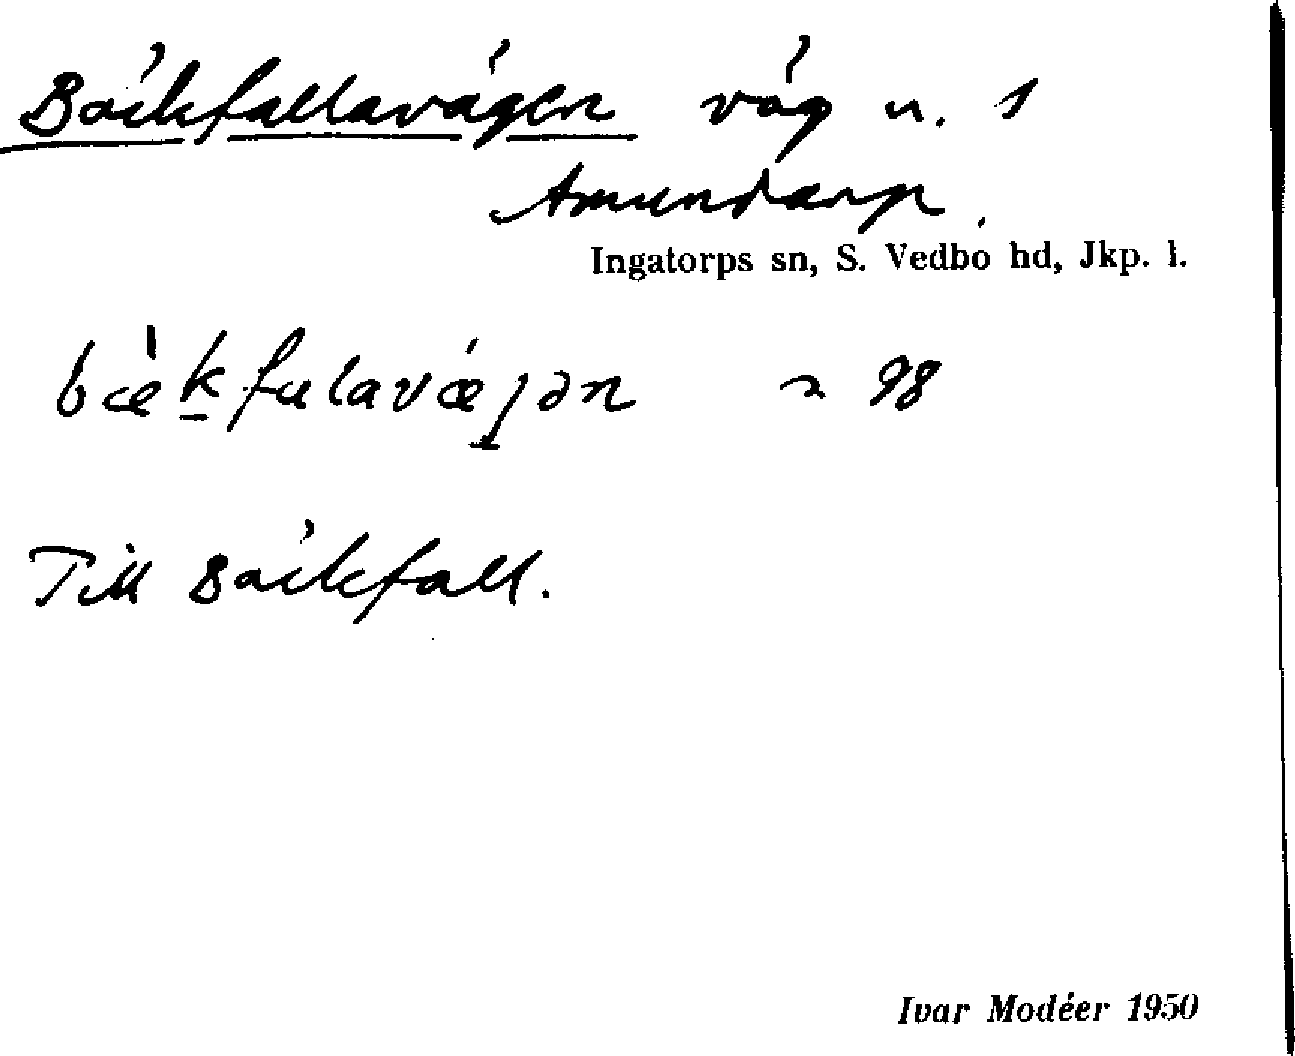 Bäckfallavägen väg n. 1
Amundarp.
Ingatorps sn, S. Vedbo hd, Jkp. l.
bækfalavæjən 98
Till Bäckfall.
Ivar Modéer 1950